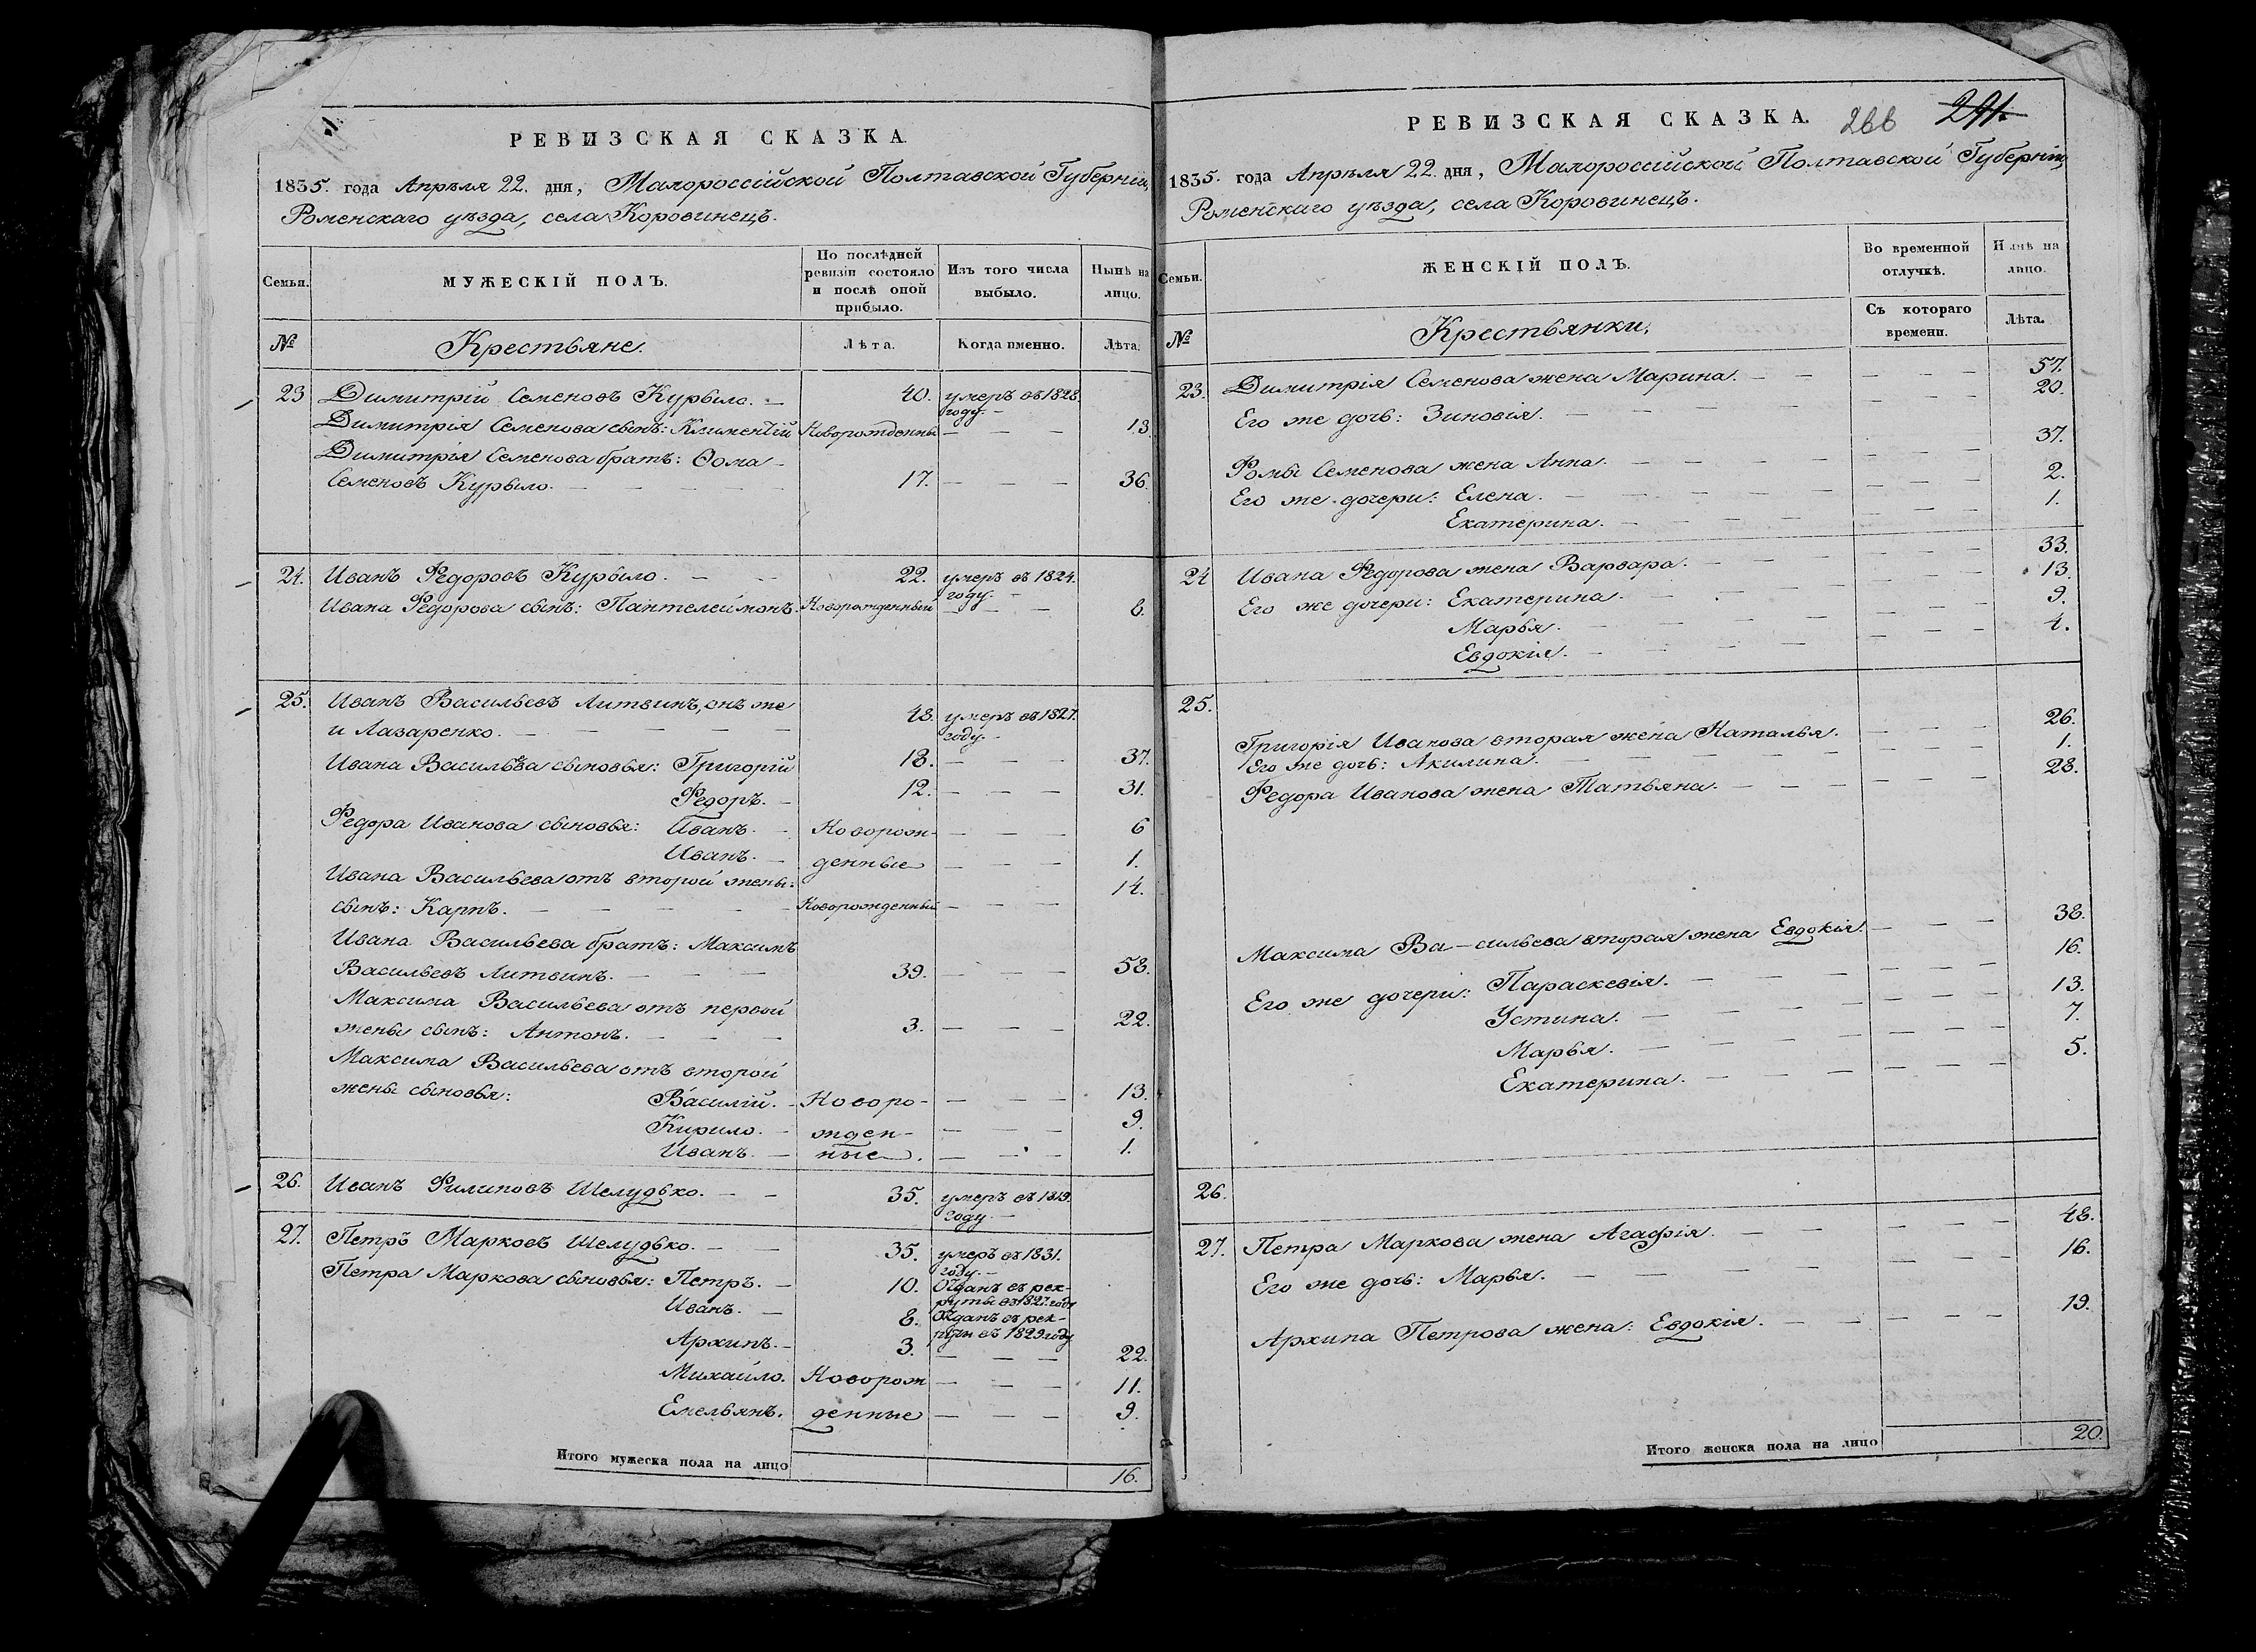 РЕВИЗСКАЯ СКАЗКА.
1835. года Апрѣля 22. дня, Малороссійской Полтавской Губерніи,
Роменскаго уѣзда, села Коровинецъ.
Семьи. МУЖЕСКІЙ ПОЛЪ. По послѣдней ревизіи состояло и послѣ оной прибыло. Изъ того числа выбыло. Нынѣ на лицо.
№ Крестьяне. Лѣта. Когда именно. Лѣта.
23 Димитрій Семеновъ Курыло. — 40. умеръ въ 1828.
году. —
Димитрія Семенова сынъ: Климентій Новорожденный — — — 13.
Димитрія Семенова братъ: Ѳома —
Семеновъ Курыло. — — — — — 17. — — — 36.
24. Иванъ Федоровъ Курыло. — — 22. умеръ въ 1824.
году. —
Ивана Федорова сынъ: Пантелеймонъ. Новорожденный — — — 6.
25. Иванъ Васильевъ Литвинъ, онъ же
и Лазаренко. — — — — — 48. умеръ въ 1827.
году. —
Ивана Васильева сыновья: Григорій 18. — — — 37.
Федоръ. — 12. — — — 31.
Федора Иванова сыновья: Иванъ. — Новорож- — — — 6
Иванъ. — денные — — — 1.
Ивана Васильева отъ второй жены: 14.
сынъ: Карпъ. — — — — — Новорожденный — — —
Ивана Васильева братъ: Максимъ
Васильевъ Литвинъ. — — — 39. — — — 58.
Максима Васильева отъ первой
жены сынъ: Антонъ. — — — 3. — — — 22.
Максима Васильева отъ второй
жены сыновья: Василій. — Новоро- — — — 13.
Кирило. — жден- — — — 9.
Иванъ. — ные. — — — 1.
26. Иванъ Филиповъ Шелудько. — — 35. умеръ въ 1819.
году. —
27. Петръ Марковъ Шелудько. — — 35. умеръ въ 1831.
году. —
Петра Маркова сыновья: Петръ. — 10. Отданъ въ рек-
руты въ 1827. году
Иванъ. — 8. Отданъ въ рек-
руты въ 1829 году
Архипъ. — 3. — — — 22.
Михайло. Новорож — — — 11.
Емельянъ. денные — — — 9.
Итого мужеска пола на лицо 16.
РЕВИЗСКАЯ СКАЗКА. 266 291.
1835. года Апрѣля 22. дня, Малороссійской Полтавской Губерніи,
Роменскаго уѣзда, села Коровинецъ.
Семьи. ЖЕНСКІЙ ПОЛЪ. Во временной отлучкѣ. Нынѣ на лицо.
№ Крестьянки, Съ котораго времени. Лѣта.
23. Димитрія Семенова жена Марина. — — — — — 57.
Его же дочь: Зиновія. — — — — 20.
Фомы Семенова жена Анна. — — — — — — — 37.
Его же дочери: Елена. — — — — — — — 2.
Екатерина. — — — — — — — 1.
24 Ивана Федорова жена Варвара. — — — — — — 33.
Его же дочери: Екатерина. — — — — — — — 13.
Марья. — — — — — — — 9.
Евдокія. — — — — — — — 4.
25.
Григорія Иванова вторая жена Наталья. — — — 26.
Его же дочь: Акилина. — — — — 1.
Федора Иванова жена Татьяна. — — — — — — 28.
Максима Ва—сильева вторая жена Евдокія. — — — 38.
Его же дочери: Параскевія. — — — — — — 16.
Устина. — — — — — — — 13.
Марья. — — — — — — — 7.
Екатерина. — — — — — — — 5.
26.
27. Петра Маркова жена Агафія. — — — — — 48.
Его же дочь: Марья. — — — — — — — 16.
Архипа Петрова жена: Евдокія. — — — — — 19.
Итого женска пола на лицо 20.